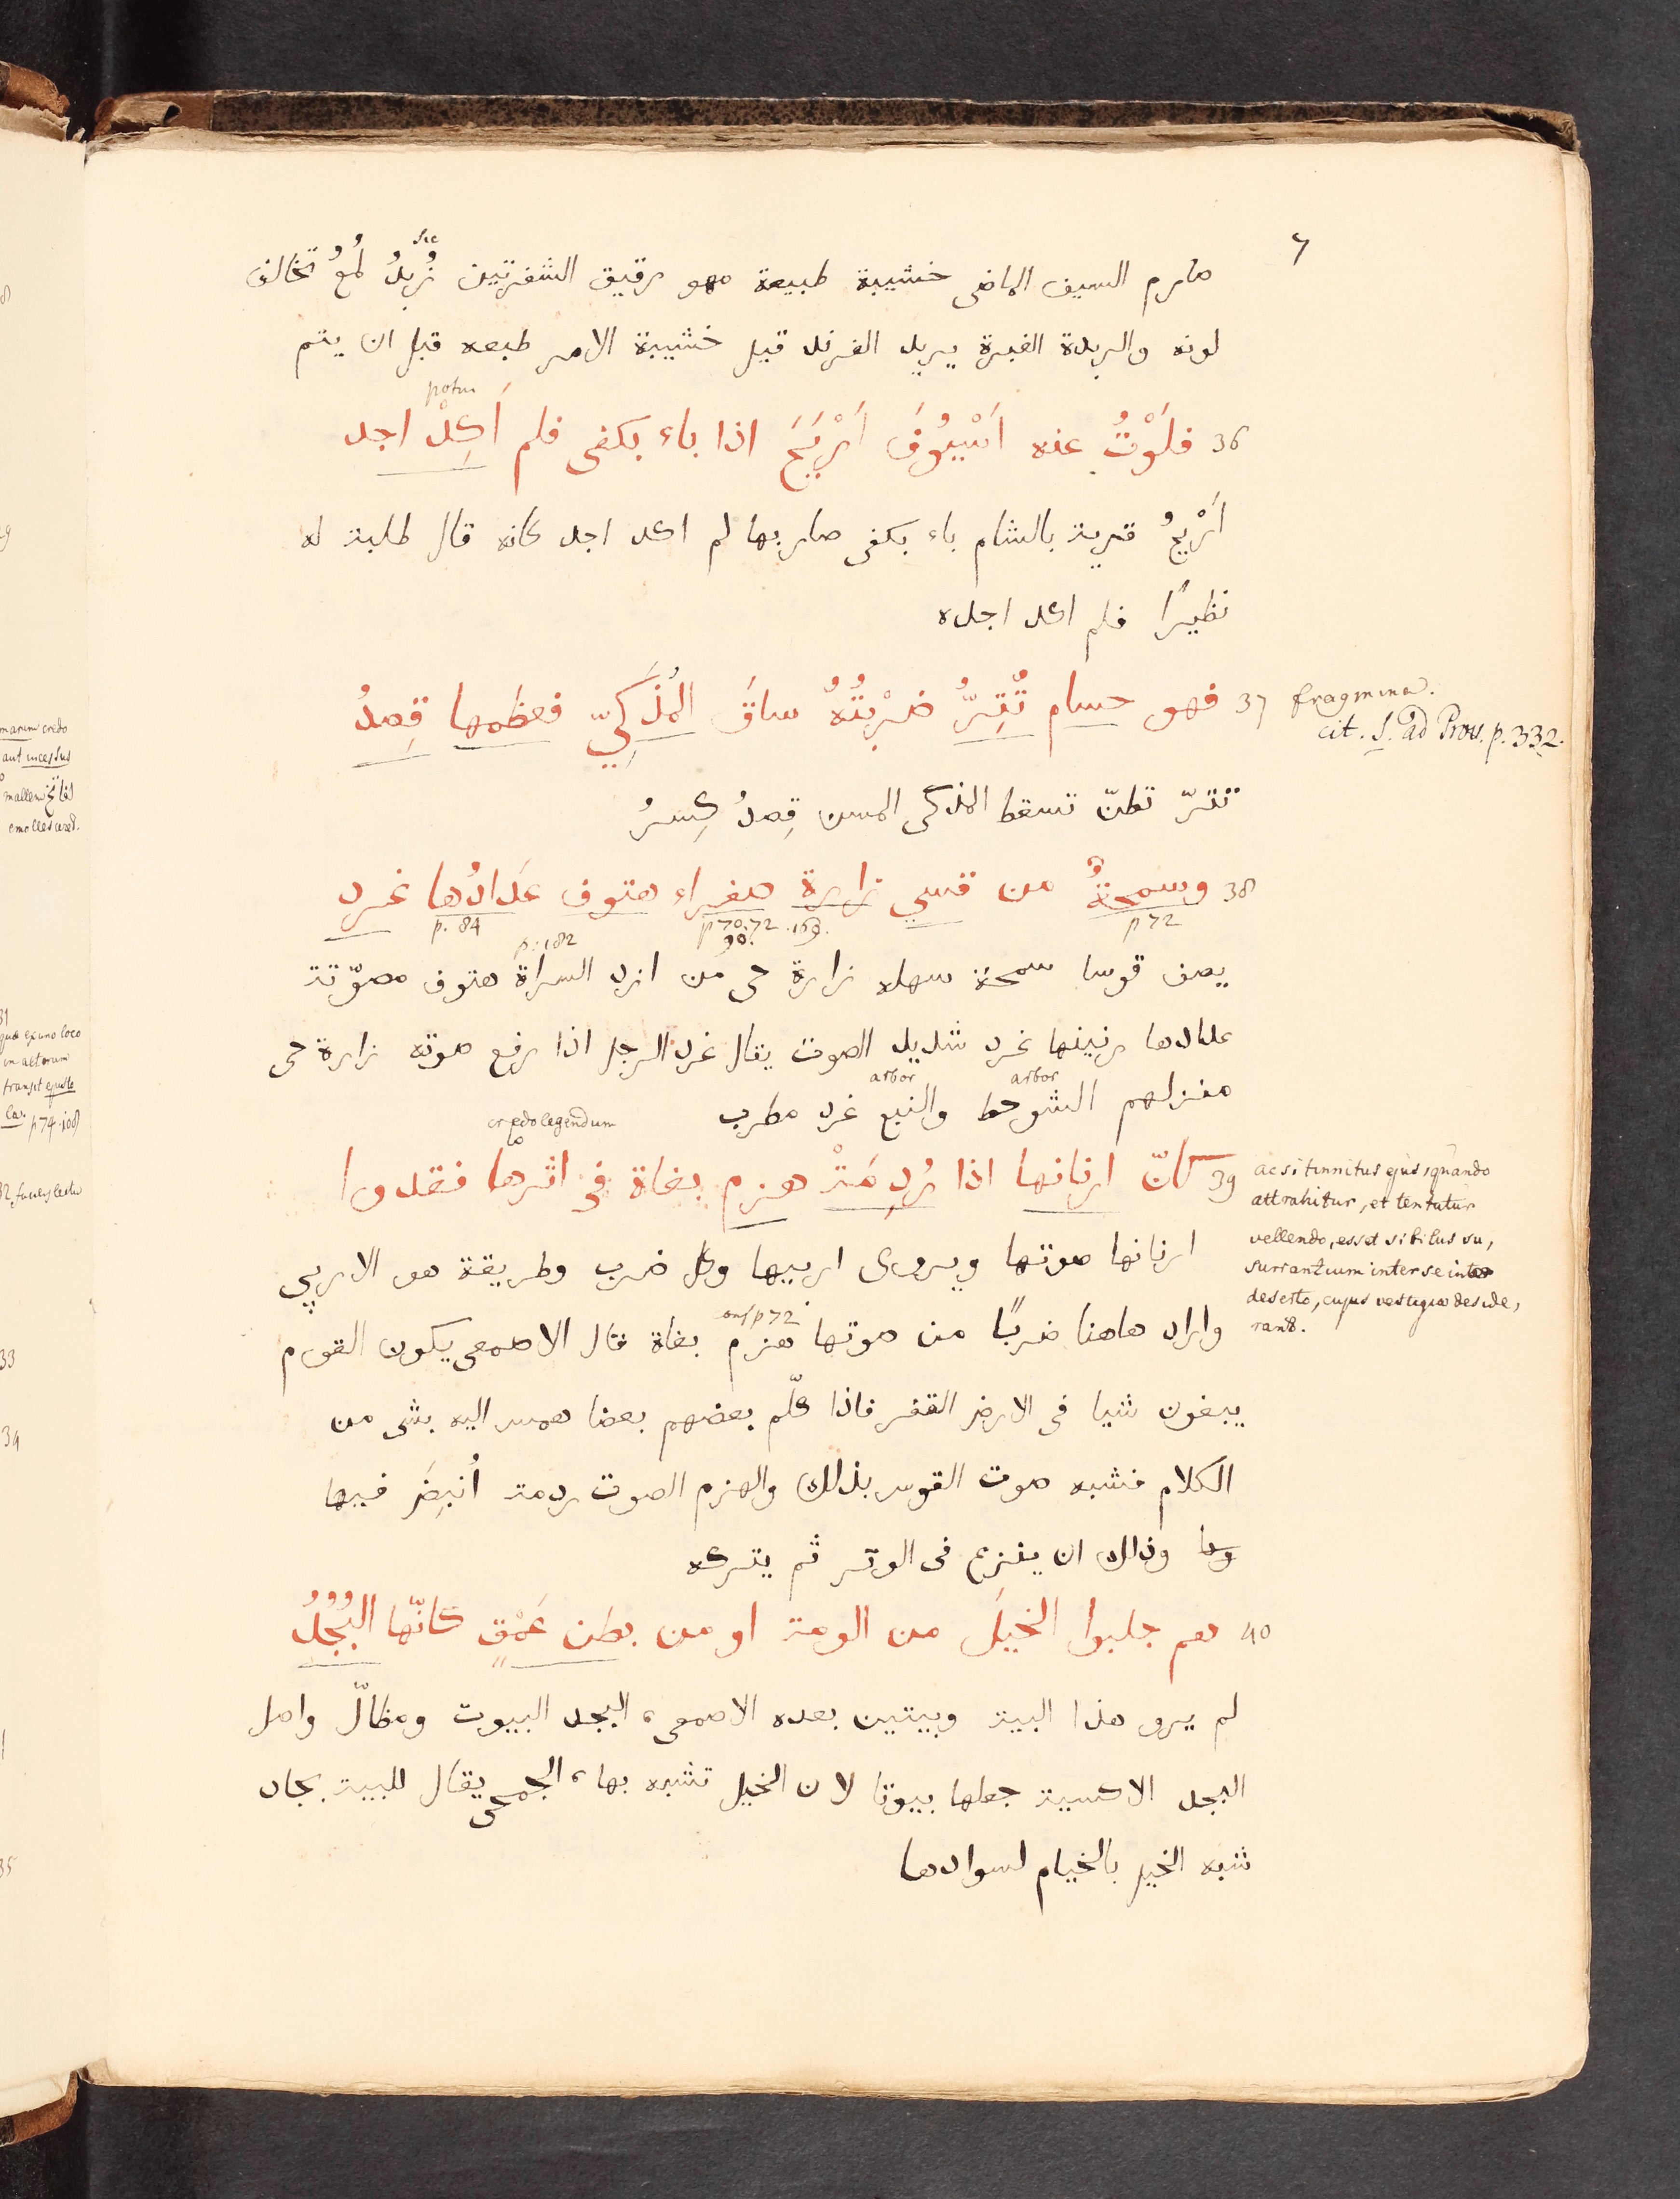 ٦
sic
صارم السيف الماضى خشيبة طبيعة مهو رقيق الشفرتين رُبدُ لمعُ تخالف
لونه والربدة الغبرة يريد الفرند قيل خشيبة الامر طبعه قبل ان يتم
potui
36 فلَوْتُ عنه اسْيُوفَ ارْيَحَ اذا باء بكفى فلم اَكِدْ اجد
اَرْيحُ قرية بالشام باء بكفى صار بها لم اكد اجد كانه قال طلبت له
نظيرًا فلم اكد اجده
37 فهو حسام تُتِرُّ ضرْبتُهُ ساقَ المُذَكِيّ فعظمها قِصدُ
fragmina.
cit. S. ad Prov. p. 332.
تترّ تطنّ تسقط المذكى المسن قِصدُ كِسرُ
38 وسمحةٌ من قسي زارة صفراء هتوف عَدادُها غرد
p 72
p 70.72.169.
90.
p. 84
p. 182
يصف قوسا سمحة سهله زارة حى من ازد السراة هتوف مصوّتة
عدادها رنينها غرد شديد الصوت يقال غرد الرجل اذا رفع صوته زارة حى
arbor arbor
منزلهم الشوحط والنبع غرد مطرب
credo legendum
39 كانّ ارنانها اذا رُدِمَتْ هزم بغاة فى اثرها فقدوا
ac si tinnitus ejus, quando
attrahitur, et tentatur
vellendo, esset sibilus su,
surrantium inter se in
deserto, cujus vestigia deside,
rant.
ارنانها صوتها ويروى اربيها وكل ضرب وطريقة هو الاربي
conf p 72
واراد هاهنا ضربًا من صوتها هزم بغاة قال الاصمعى يكون القوم
يبغون شيا فى الارض القفر فاذا كلّم بعضهم بعضا همس اليه بشى من
الكلام فشبه صوت القوس بذلك والهزم الصوت ردمت أُنبِضَ فيها
وذلك ان ينزع فى الوتر ثم يتركه
40 هم جلبوا الخيلَ من الومة او من بطن عَمْقٍ كانّها البُجُدُ
لم يرو هذا البيت وبيتين بعده الاصمعى، البجد البيوت ومظالّ واصل
البجد الاكسية جعلها بيوتا لان الخيل تشبه بها، الجمحى يقال للبيت بجاد
شبه الخيل بالخيام لسوادها